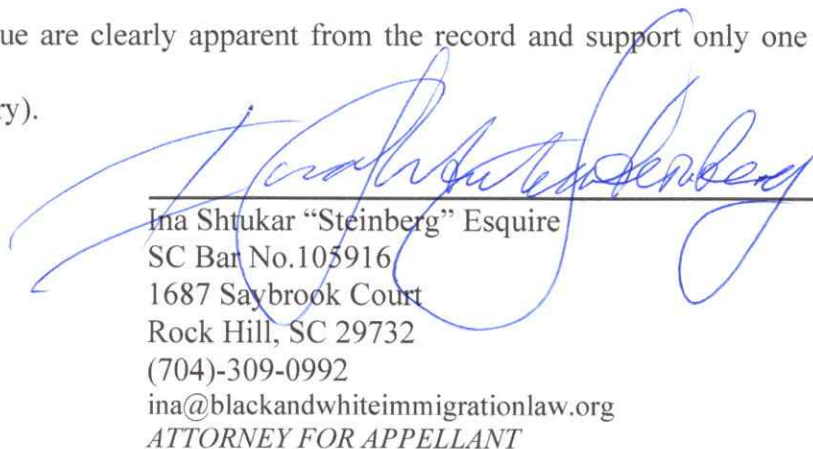 ue are clearly apparent from the record and support only one
ry).
Ina Shtukar “Steinberg” Esquire
SC Bar No.105916
1687 Saybrook Court
Rock Hill, SC 29732
(704)-309-0992
ina@blackandwhiteimmigrationlaw.org
ATTORNEY FOR APPELLANT